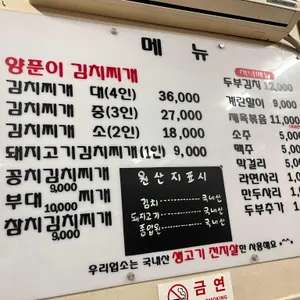 메뉴
양푼이 김치찌개
김치찌개 대(4인) 36,000
김치찌개 중(3인) 27,000
김치찌개 소(2인) 18,000
돼지고기김치찌개(1인) 9,000
꽁치김치찌개
9,000
부대 찌개
10,000
참치김치찌개
9,000
저녁메뉴
두부김치 12,000
계란말이 9,000
제육볶음 11,000
소주 5,000
맥주
막걸리
라면사리 1,000
만두사리
두부추가
원산지표시
김치 국내산
돼지고기 국내산
쌀 국내산
우리업소는 국내산 생고기 전지살만 사용해요 ^^
금연